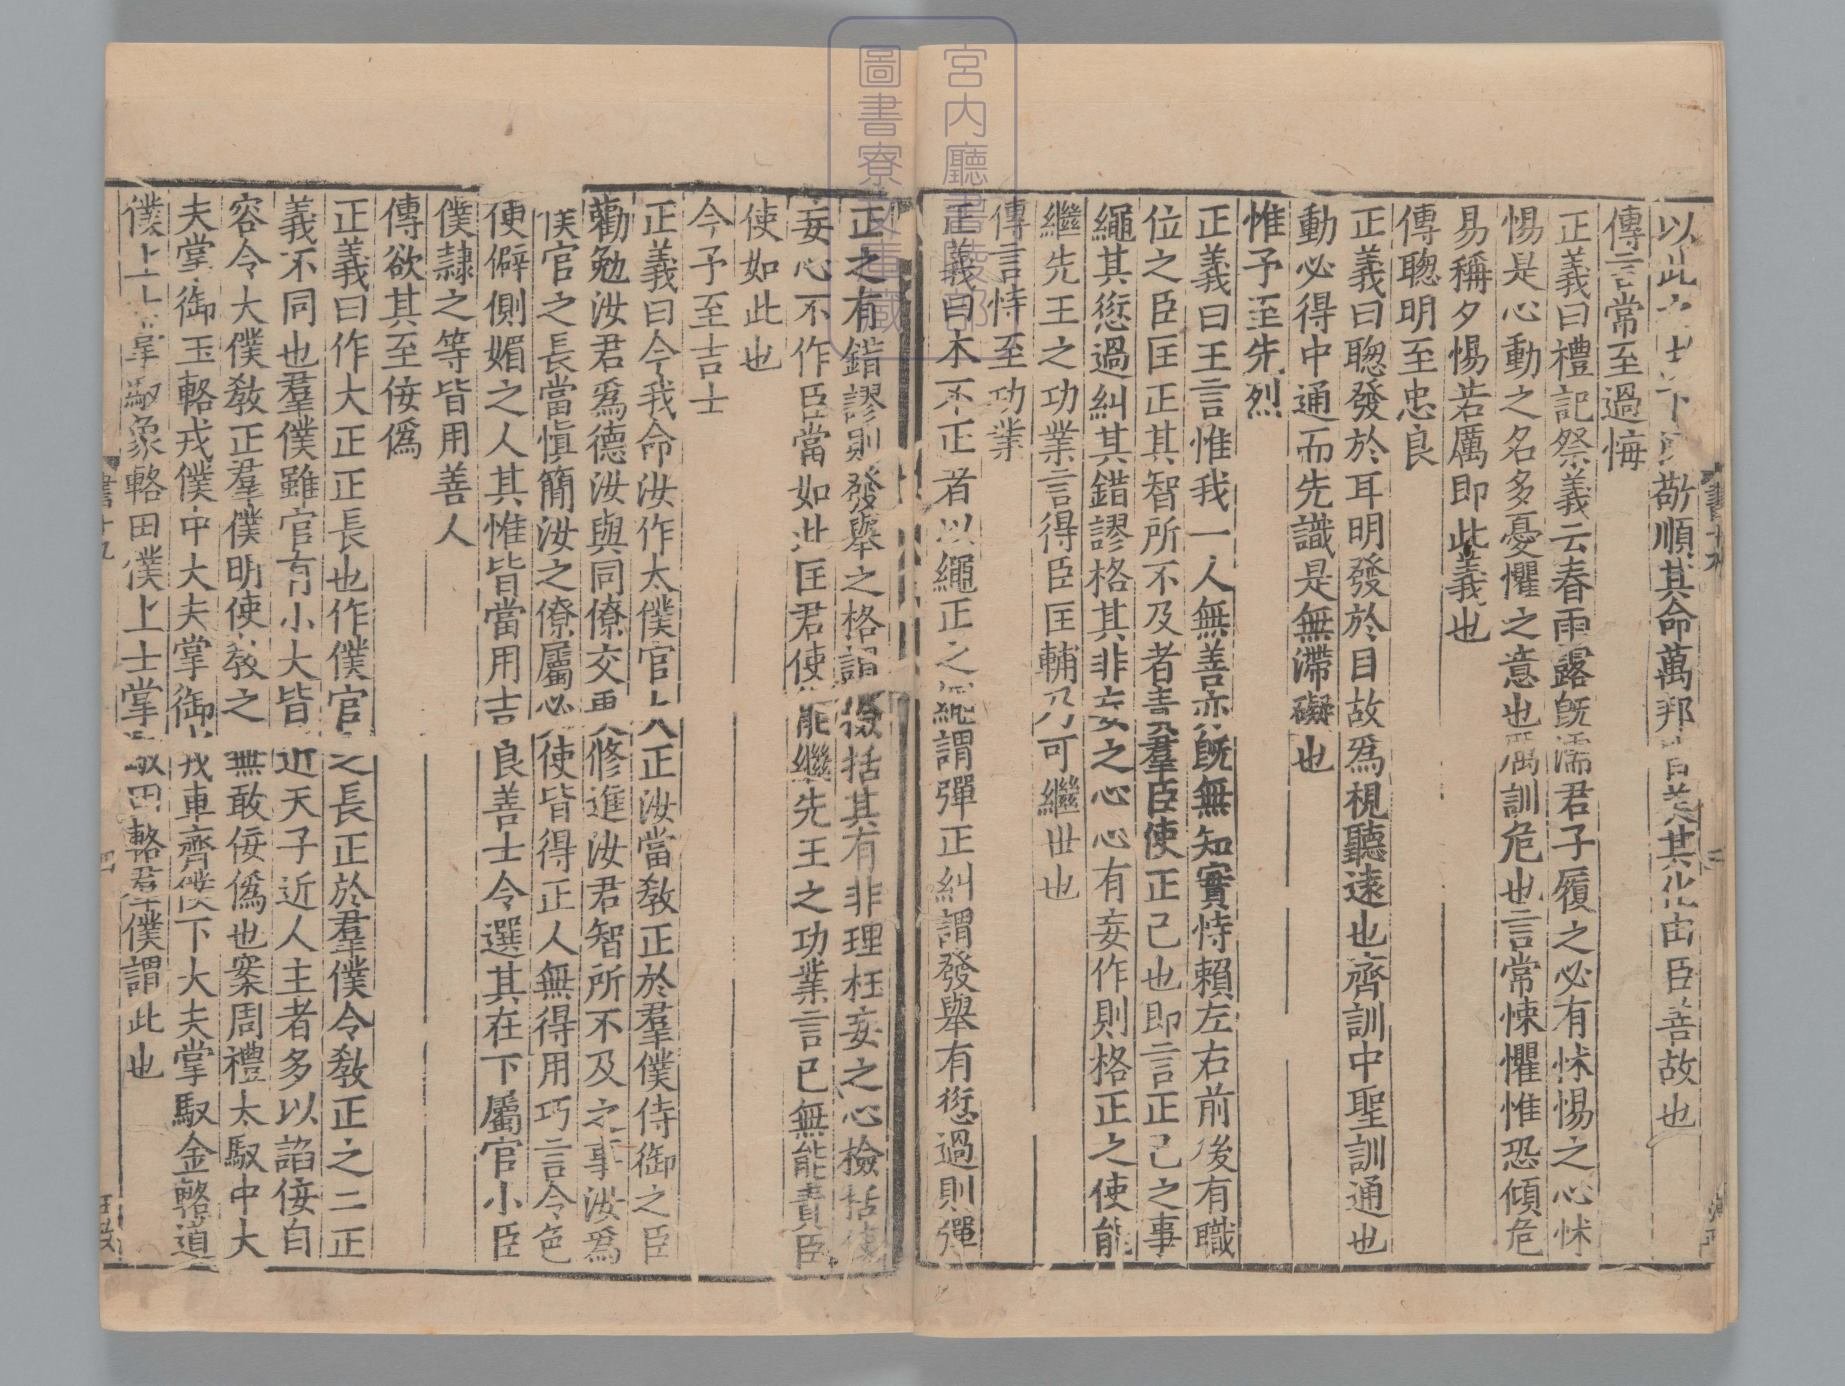 以此之故下敬順其命萬邦皆美其化由臣善故也
傳言常至過悔
正義曰禮記祭義云春雨露旣濡君子履之必有怵惕之心怵
惕是心動之名多憂懼之意也厲訓危也言常悚懼惟恐傾危
易稱夕惕若厲即此義也
傳聦明至忠良
正義曰聦發於耳明發於目故爲視聽遠也齊訓中聖訓通也
動必得中通而先識是無滯礙也
惟予至先烈
正義曰王言惟我一人無善亦旣無知實恃賴左右前後有職
位之臣匡正其智所不及者責羣臣使正己也即言正己之事
繩其愆過糾其錯謬格其非妄之心心有妄作則格正之使能
繼先王之功業言得臣匡輔乃可繼世也
傳言恃至功業
正義曰木不正者以繩正之繩謂彈正糾謂發舉有愆過則彈
正之有錯謬則發舉之格謂檢括其有非理枉妄之心檢括使
妄心不作臣當如此匡君使能繼先王之功業言已無能責臣
使如此也
今予至吉士
正義曰今我命汝作太僕官大正汝當敎正於羣僕侍御之臣
勸勉汝君爲德汝與同僚交更修進汝君智所不及之事汝爲
僕官之長當愼簡汝之僚屬必使皆得正人無得用巧言令色
便僻側媚之人其惟皆當用吉良善士令選其在下屬官小臣
僕隷之等皆用善人
傳欲其至佞僞
正義曰作大正正長也作僕官之長正於羣僕令敎正之二正
義不同也羣僕雖官有小大皆近天子近人主者多以諂佞自
容令大僕敎正羣僕明使敎之無敢佞僞也案周禮太馭中大
夫掌御玉輅戎僕中大夫掌御戎車齊僕下大夫掌馭金輅道
僕上士掌馭象輅田僕上士掌馭田輅羣僕謂此也
書十九